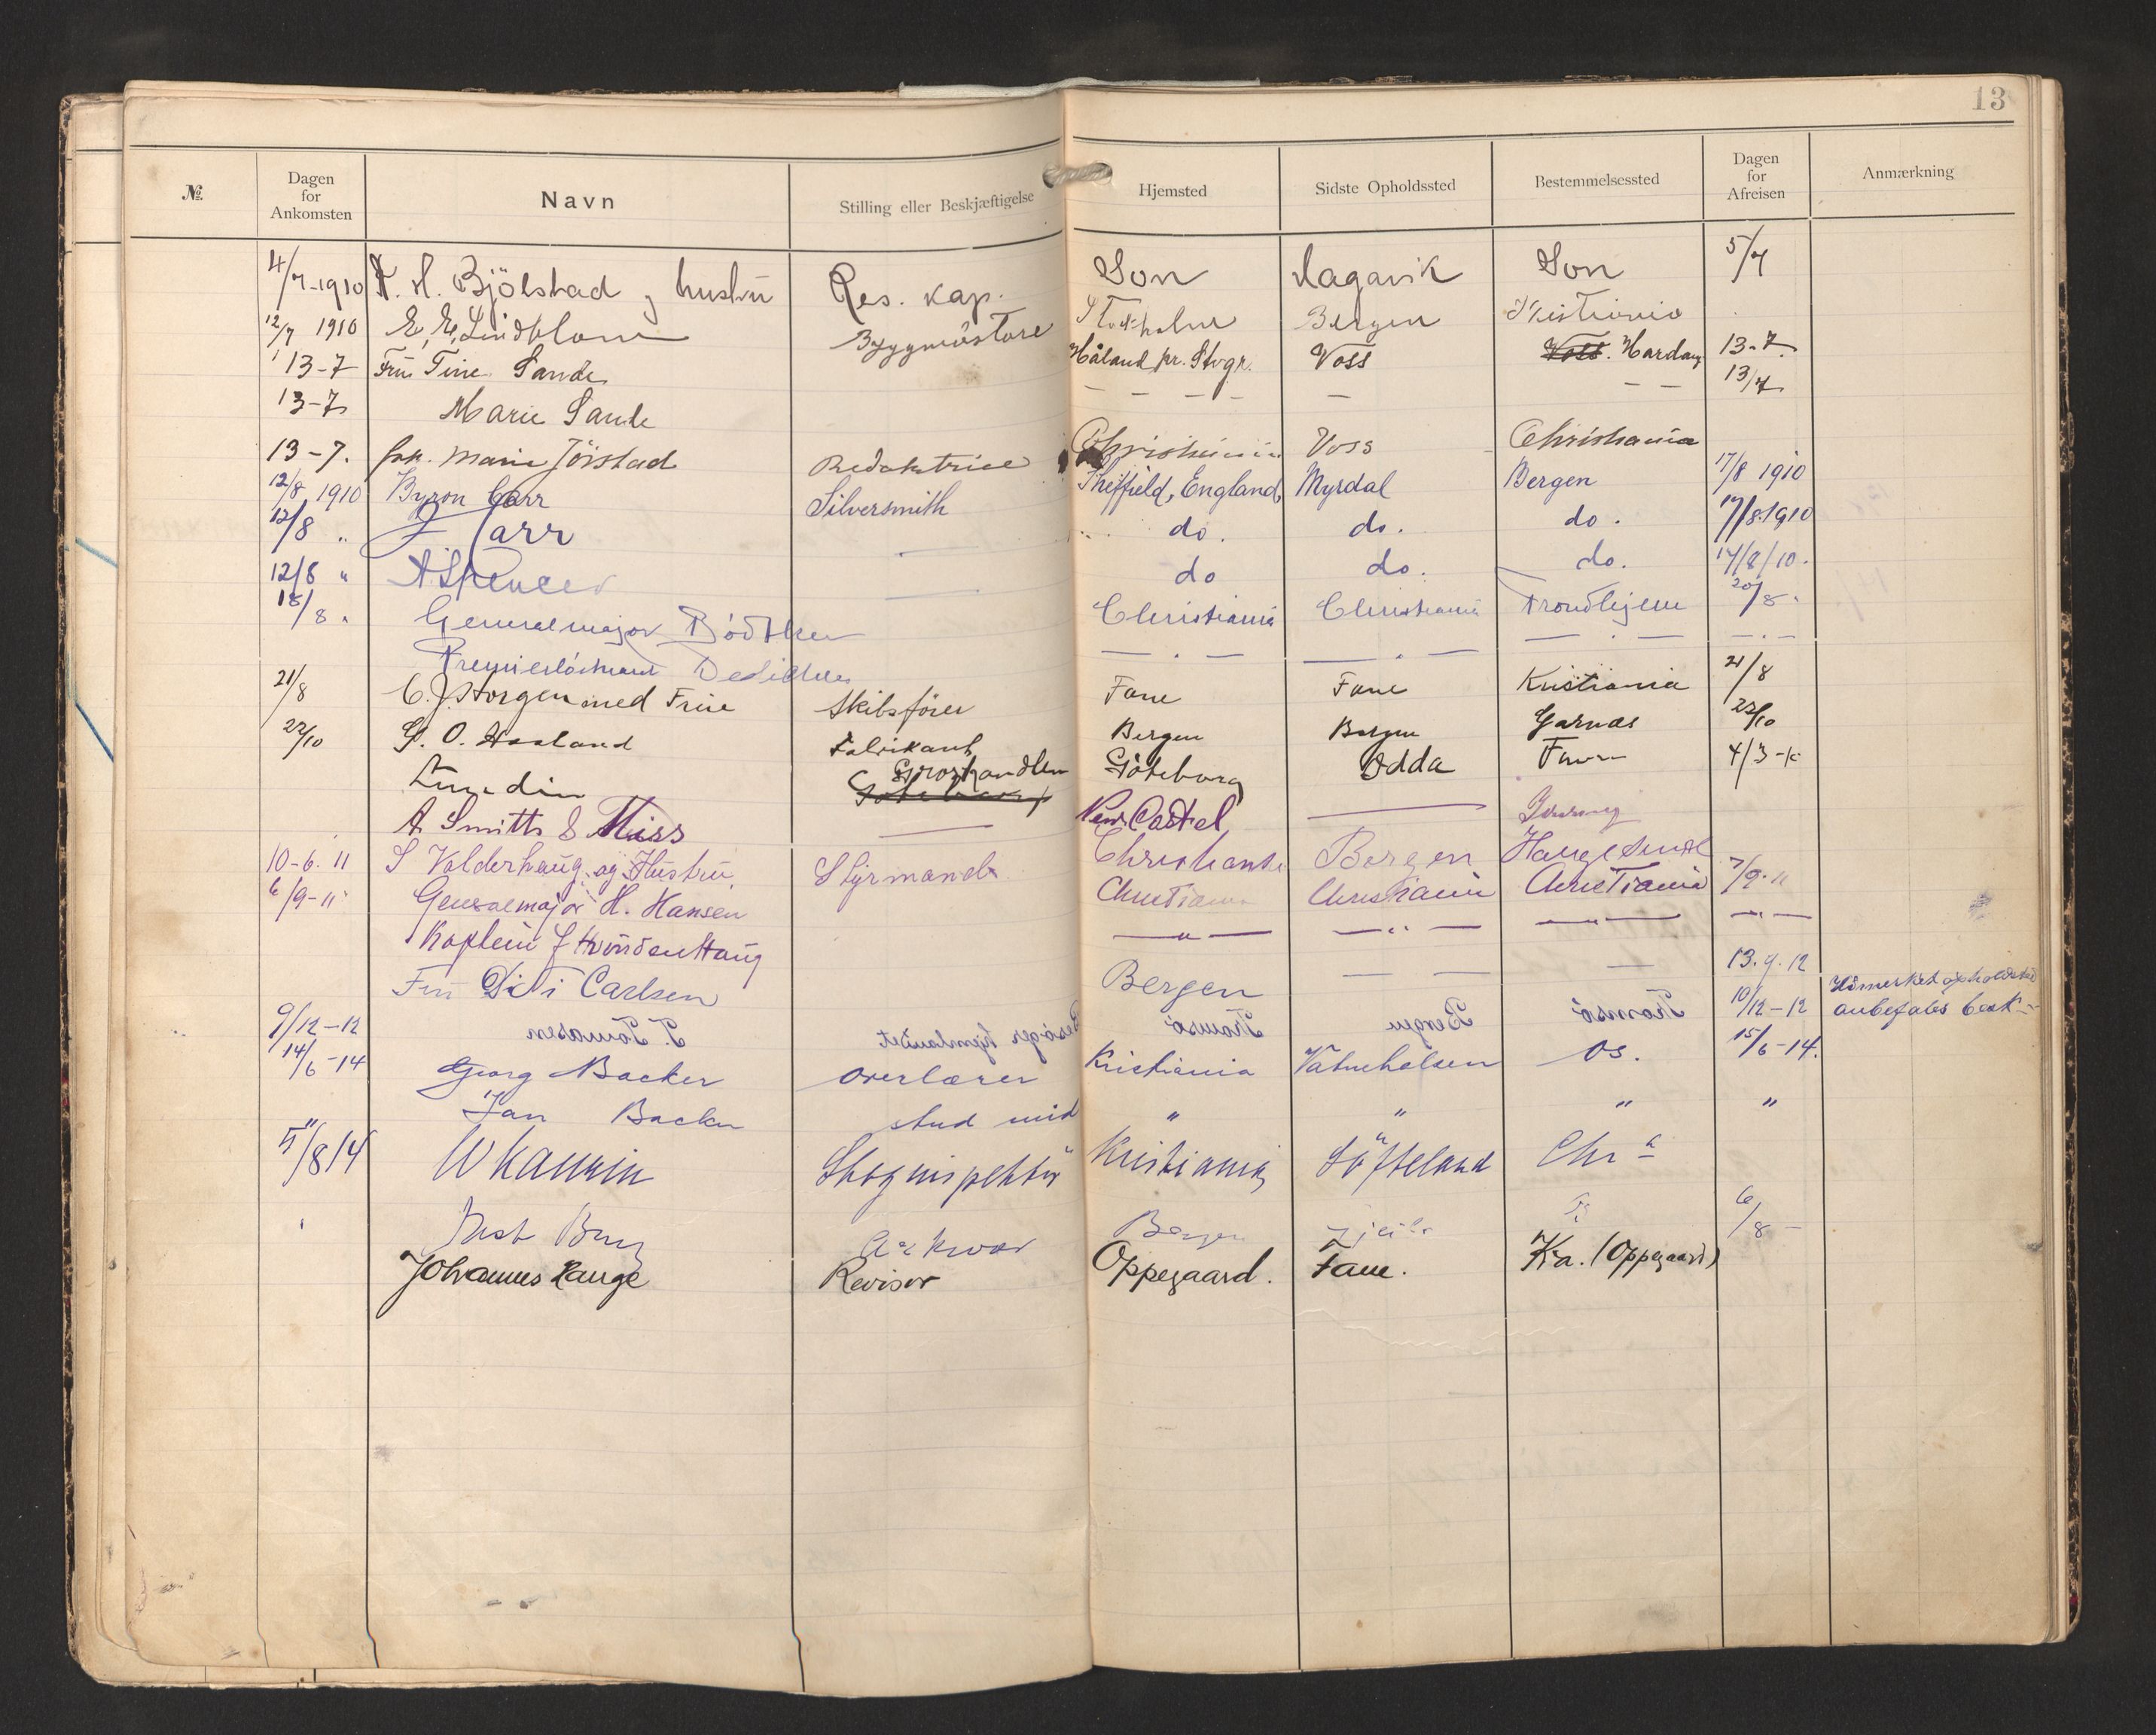 13
№ Dagen for Ankomsten Navn Stilling eller Beskjæftigelse Hjemsted Sidste Opholdssted Bestemmelsessted Dagen for Afreisen Anmærkning
4/7-1910 H. Bjölstad Hustru Res. kap. Son Hagavik Son 5/7
12/7 1910 E. E. Lindblom Byggmästare Bergen Kristiania
13-7 Fru Tine Sande Håland pr. Stvgr. Voss Voss. Hardang 13-7
13-7 Marie Sande — — — — — — — 13/7
13-7. Marie Jörstad Redaktrice Christiania Voss Christiania
12/8 1910 Byron Carr Silversmith Sheffield, England, Myrdal Bergen 17/8 1910
12/8 " Carr do. do. do. 17/8 1910
12/8 " A Spencer — do do. do. 17/8/10.
18/8 " Generalmajor Bödtker Christiania Christiania Trondhjem 20/8.
Premierlöitnant Dedichen — " — — " — — " — — " —
21/8 C. J. Storgen med Frue Skibsförer Fane Fane Kristiania 21/8
22/10 O. Haaland Fabrikant Bergen Bergen Garnæs 22/10
Lundin Grosshandlare Göteborg Göteborg Odda
A Smith & Miss — New Castel —
10-6.11 S Valderhaug og Hustru Styrmand Bergen Haugesund
6/9-11 Generalmajor H. Hansen Christiania Christiania Christiania 7/9-11
Kaptein — " — — " — — " — — " —
Fru Carlsen Bergen — — — 13.9.12
9/12-12 T. Tomassen Besøger hjemlandet Tromsö Bergen Tromsö 10/12-12 anbefales
14/6-14 Georg Backer Overlærer Kristiania Vatnehalsen Os. 15/6-14.
Jan Backer stud " " " "
5/8 14 W Kaurin Skoginspektör Kristiania Söfteland Chr a
Bergen 6/8 -
Johannes Hauge Revisor Oppegaard. Fane. Kra. (Oppegaard)